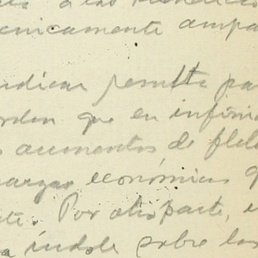 a los
nicamente ampa
indicar resulta pa
orden que en infini
s aumentos de flete
cargas económicas q
te. Por otra parte, e
a índole sobre los